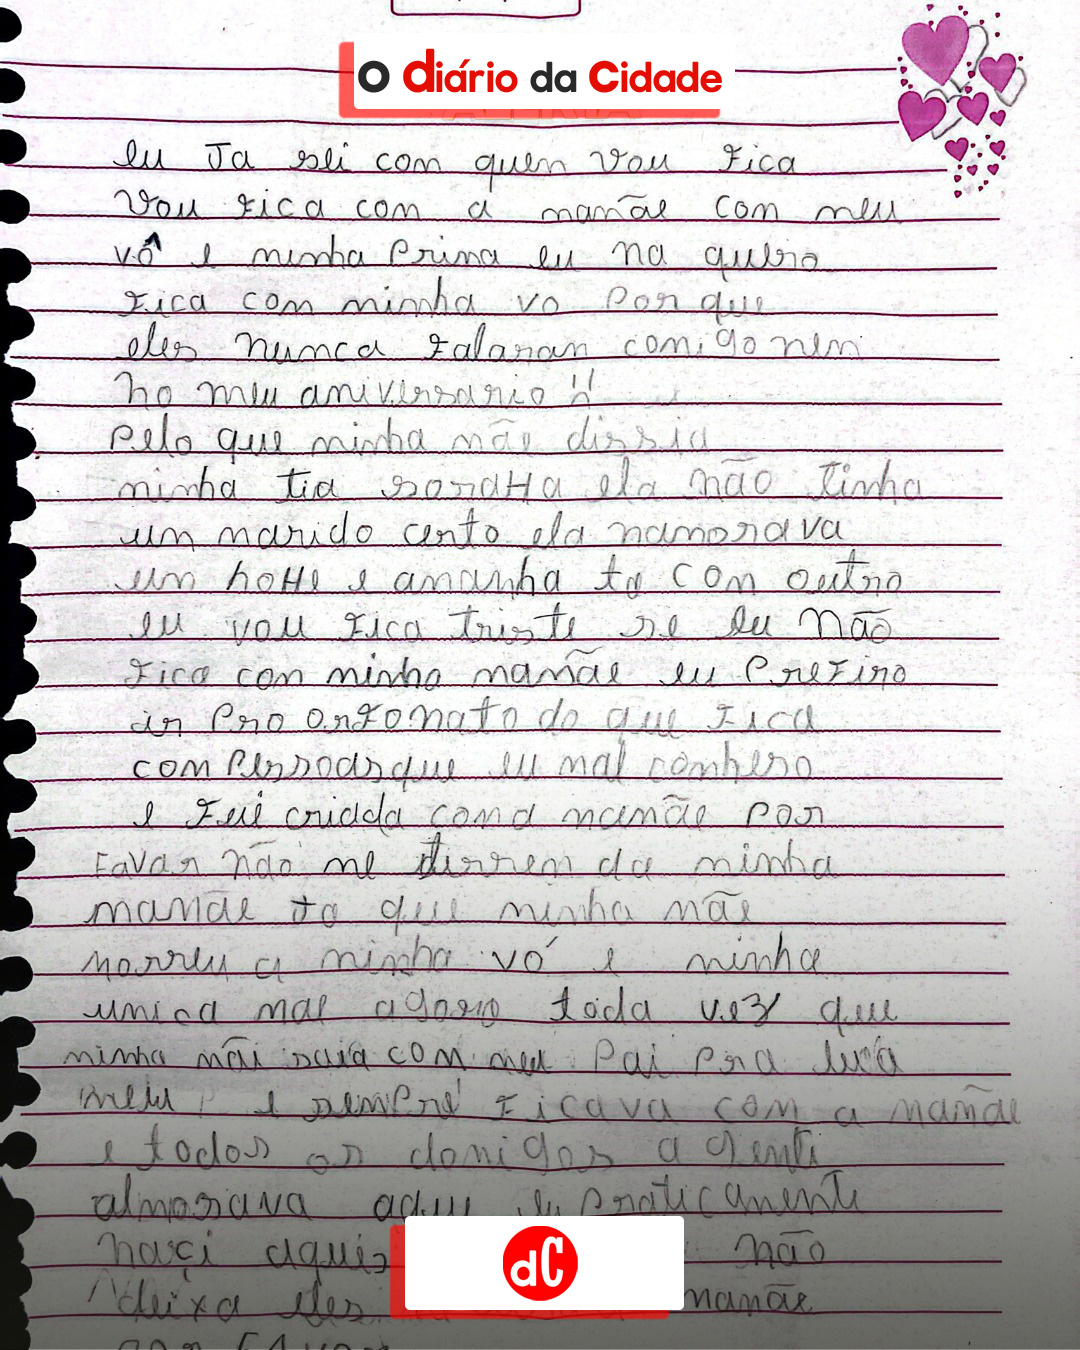 O diário da Cidade
eu Ja sei com quen vou fica
Vou fica com a mamãe com meu
vô e minha Prima eu na quero
fica com minha vo Por que
eles nunca falaran comigo nem
no meu aniversario !!
Pelo que minha mãe dissia
minha tia ela não tinha
um marido certo ela namorava
um hoHe e amanha ta com outro
eu vou fica triste se eu não
fica com minha mamãe eu Prefiro
ir Pro orfonato do que fica
com Pessoas que eu mal conheso
e fui criada com a mamãe Por
Favar não me tirrem da minha
mamãe Ja que minha mãe
morreu a minha vó e minha
unica mae agora toda vez que
minha mãi saia com meu Pai Pra
e sempre ficava com a mamãe
e todos os domigos a genti
almosava aqui eu Praticamente
naxi aqui não
deixa eles mamãe
por Favor
dC